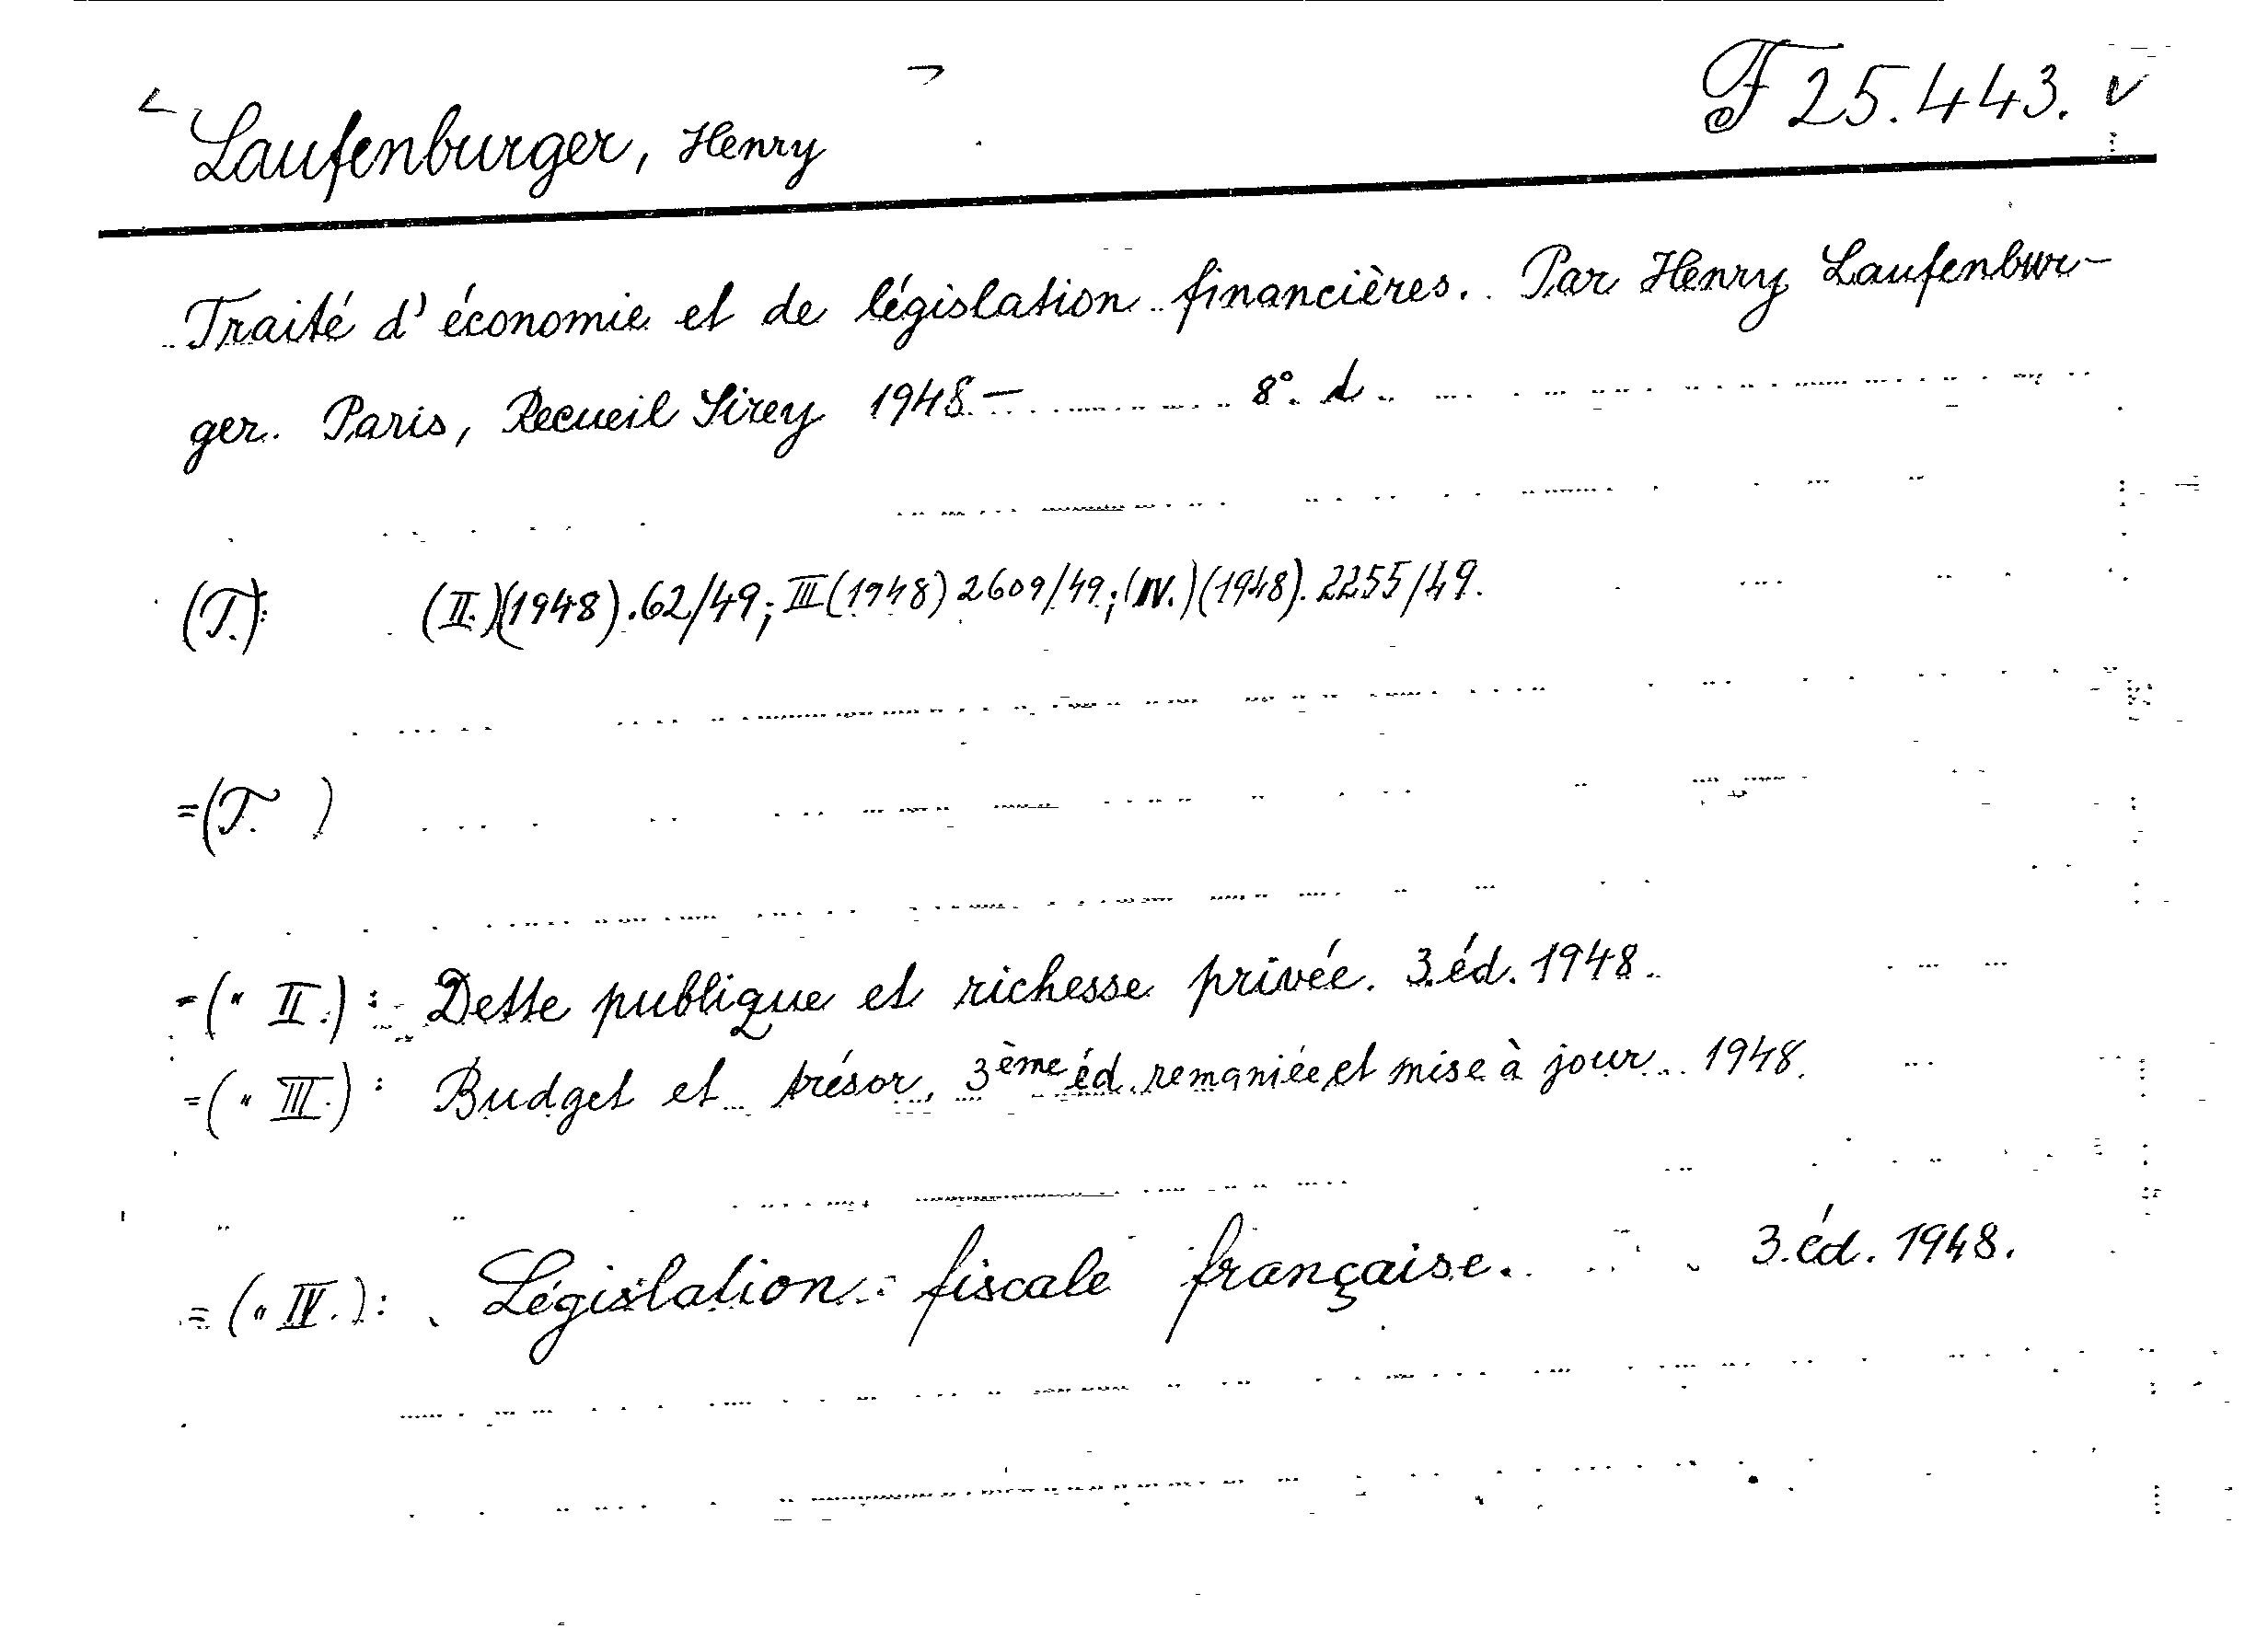 Laufenburger, Henry
F 25.443. v
Traité d'économie et de législation financières. Par Henry Laufenbur-
ger. Paris, Recueil Sirey 1948.— 8°. d
(T.): (II.)(1948).62/49; III (1948) 2609/49; (IV.)(1948). 2255/49.
=(T. )
=(" II.): Dette publique et richesse privée. 3.éd. 1948.
=(" III.): Budget et trésor, 3ème éd. remaniée et mise à jour. 1948.
=(" IV.): Législation fiscale française. 3.éd. 1948.